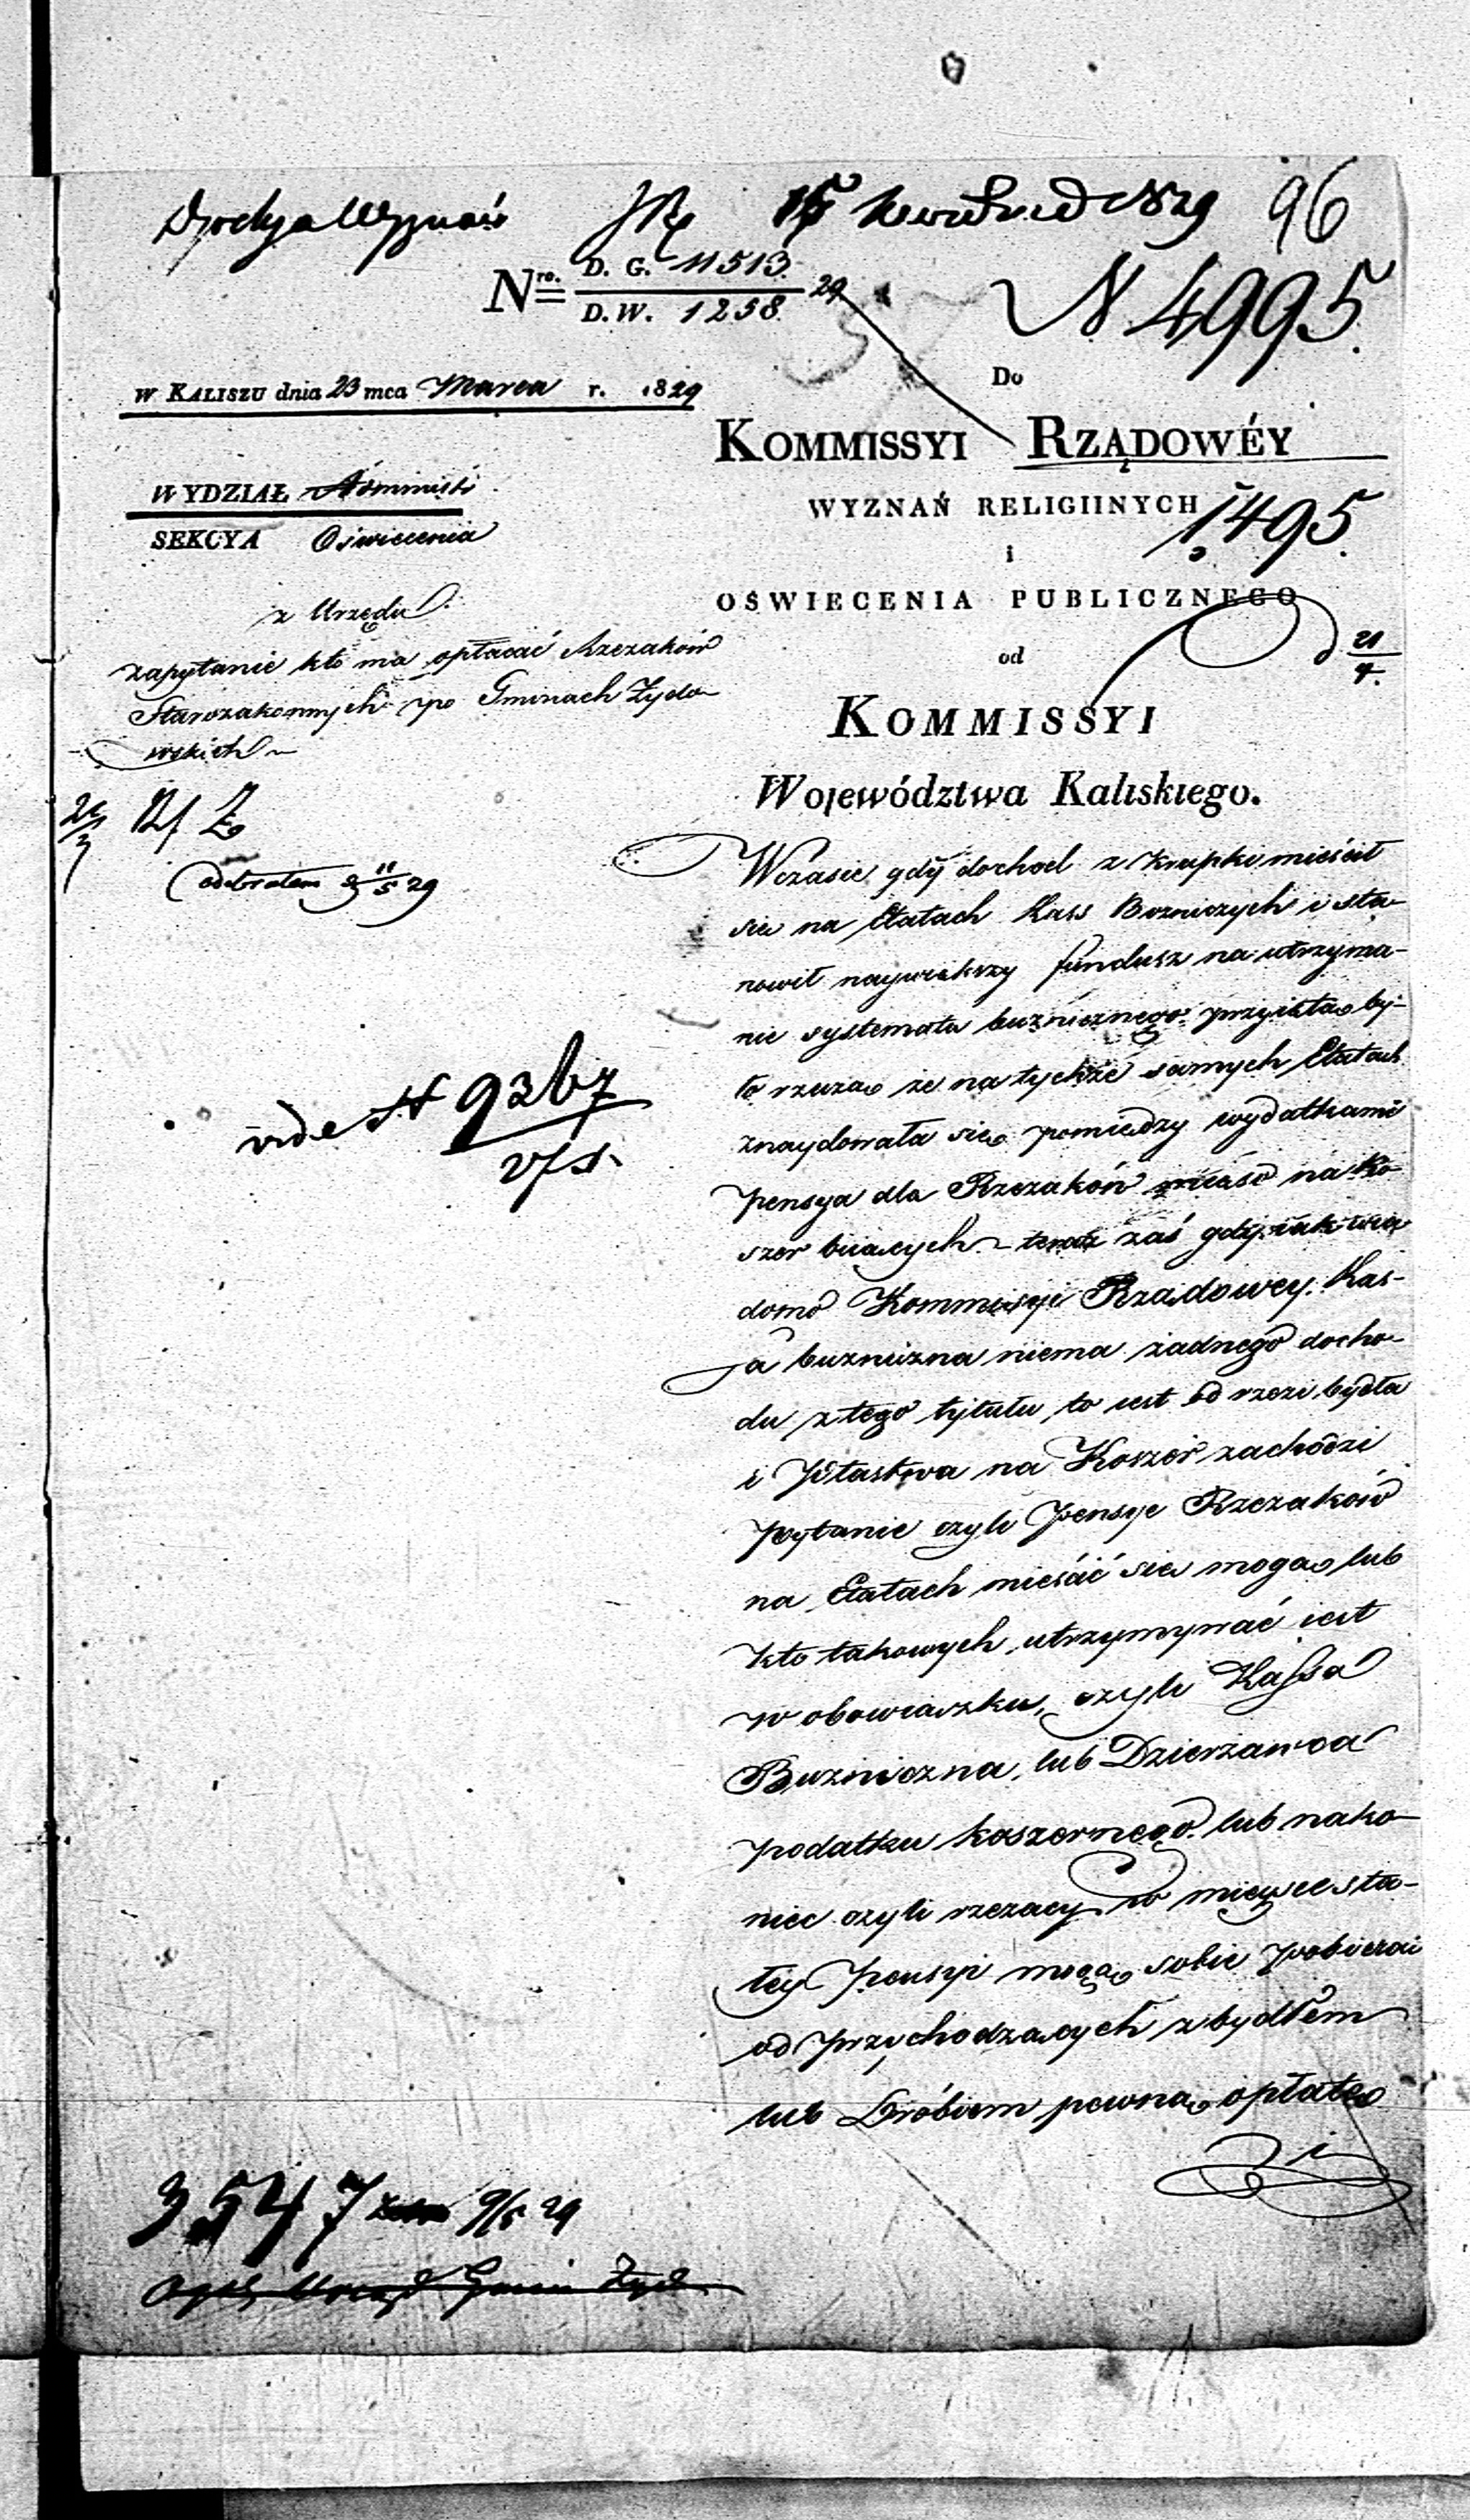 Dyrekcya Wyznań 15 Kwietnia 1829 96
Nro. D. G. 11513. 29
D. W. 1258.
N 4995.
w Kaliszu dnia 23 mca Marca r. 1829
Do
Kommissyi Rządowéy
wyznań religiinych
1495.
i
oświecenia publicznego
d 21/4.
od
Kommissyi
Województwa Kaliskiego.
Wydział Administ
Sekcya Oświecenia
z Urzędu.
zapytanie kto ma opłacać Rzezaków
Starozakonnych po Gminach Żydo-
wskich
odebrałem d 11/5 29
vide N 9367
v/s.
Wczasie gdy dochod z Krupki mieścił
sie na Etatach Kass Bozniczych i sta-
nowił naywiekszy fundusz na utrzyma-
nie systematu bużnicznego przyięta by-
ło rzeczą że na tychże samych Etatach
znaydowała się pomiędzy wydatkami
pensya dla Rzezaków mięso na Ko-
szer biiących – teraz zaś gdy iak wia
domo Kommissyi Rządowey Kas-
sa bużniczna niema żadnego docho-
du z tego tytułu, to iest od rzezi bydła
i Ptastwa na Koszer zachodzi
pytanie czyli Pensye Rzezaków
na Etatach mieścić sie mogą lub
kto takowych utrzymywać iest
w obowiązku, czyli Kassa
Bużniczna, lub Dzierżawca
podatku koszernego lub nako-
niec czyli rzezacy w mieysce sta-
łey Pensyi mogą sobie pobierać
od przychodzących z bydłem
lub Drobiem pewną opłatę
i
3547 9/5 29